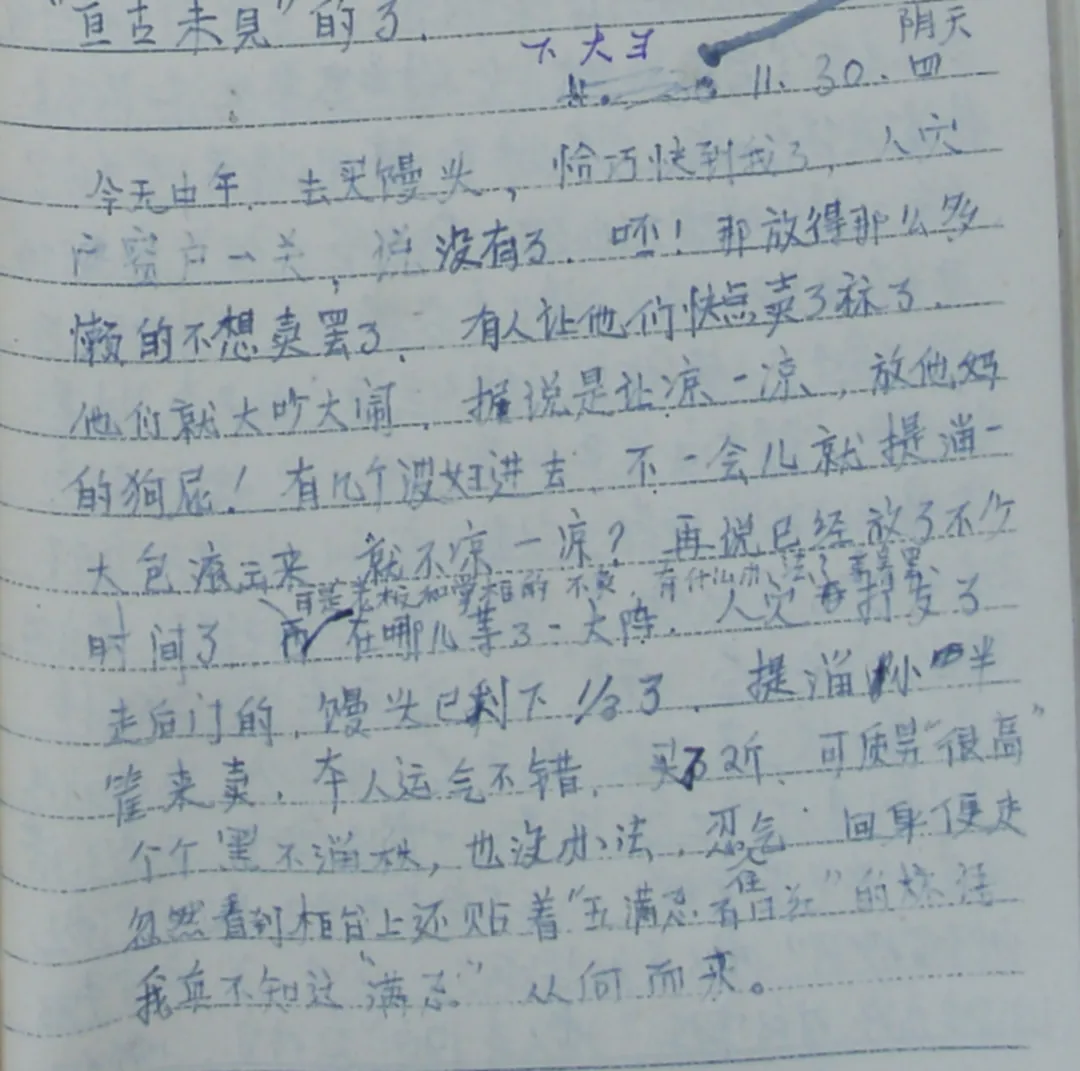 "亘古未見"的了.
下大
阴天
11. 30. 四
今天中午. 去买馒头, 恰巧快到我了, 人家
窗户一关, 说没有了. 呸! 那放得那么多
懒的不想卖罢了. 有人让他们快点卖了
他们就大吵大闹. 据说是让凉一凉, 放他妈
的狗屁! 有几个泼妇进去. 不一会儿就提溜一
大包滚出来 就不凉一凉? 再说已经放了不少
可是老板和掌柜的不卖, 有什么办法
时间了. 在哪儿等了一大阵. 人家打发了
走后门的, 馒头已剩下 1/3了. 提溜小半
筐来卖. 本人运气不错. 买了2斤. 可质量"很高"
个个黑不溜秋, 也没办法. 忍气 回身便走
忽然看到柜台上还贴着"五满意 售"的标语
我真不知这"满意"从何而来。